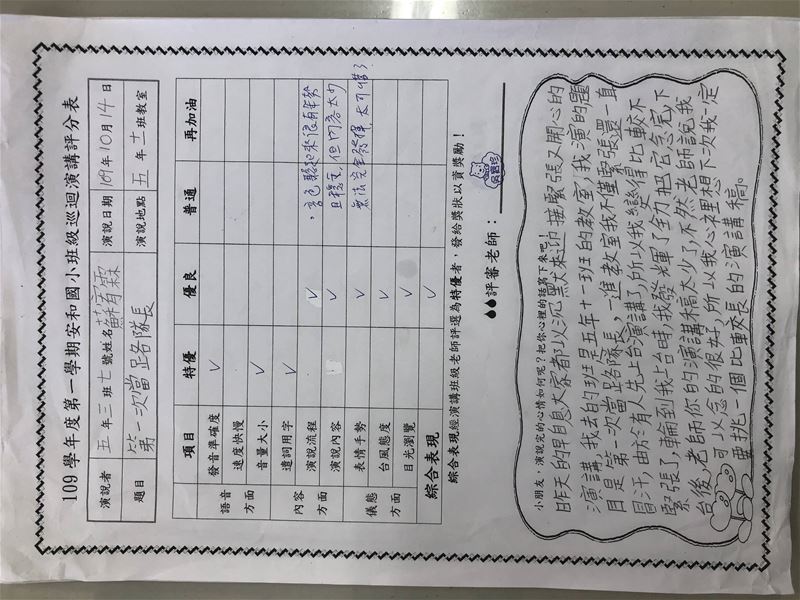 109 學年度第一學期安和國小班級巡迴演講評分表
演說者 五年三班七號姓名蘇宥霖 演說日期 109年10月14日
題目 第一次當路隊長 演說地點 五年十二班教室
項目 特優 優良 普通 再加油
語音方面 發音準確度 ✓
速度快慢
音量大小 ✓
內容方面 遣詞用字 ✓
演說流程 ✓
演說內容 ✓
儀態方面 表情手勢 ✓
台風態度 ✓
目光瀏覽 ✓
綜合表現 ✓
且穩定，但內容太少
無法完全發揮，太可惜了！
綜合表現經演講班級老師評選為特優者，發給獎狀以資獎勵！
評審老師：
小朋友，演說完的心情如何呢？把你心裡的話寫下來吧！
昨天的早自息大家都以沉默來迎接緊張又開心的
演講，我去的班是五年十二班的教室，我演的題
目是第一次當路隊長，一進教室我不僅緊張還一身
冒汗，由於有人先上台演講了，所以我變得比較不
緊張了，輪到我上台時，我發輝了全力把它念完，下
台後，老師你的演講稿太少了，不然老師說我
可以念的很好，所以我心裡想下次我一定
要挑一個比較長的演講稿。